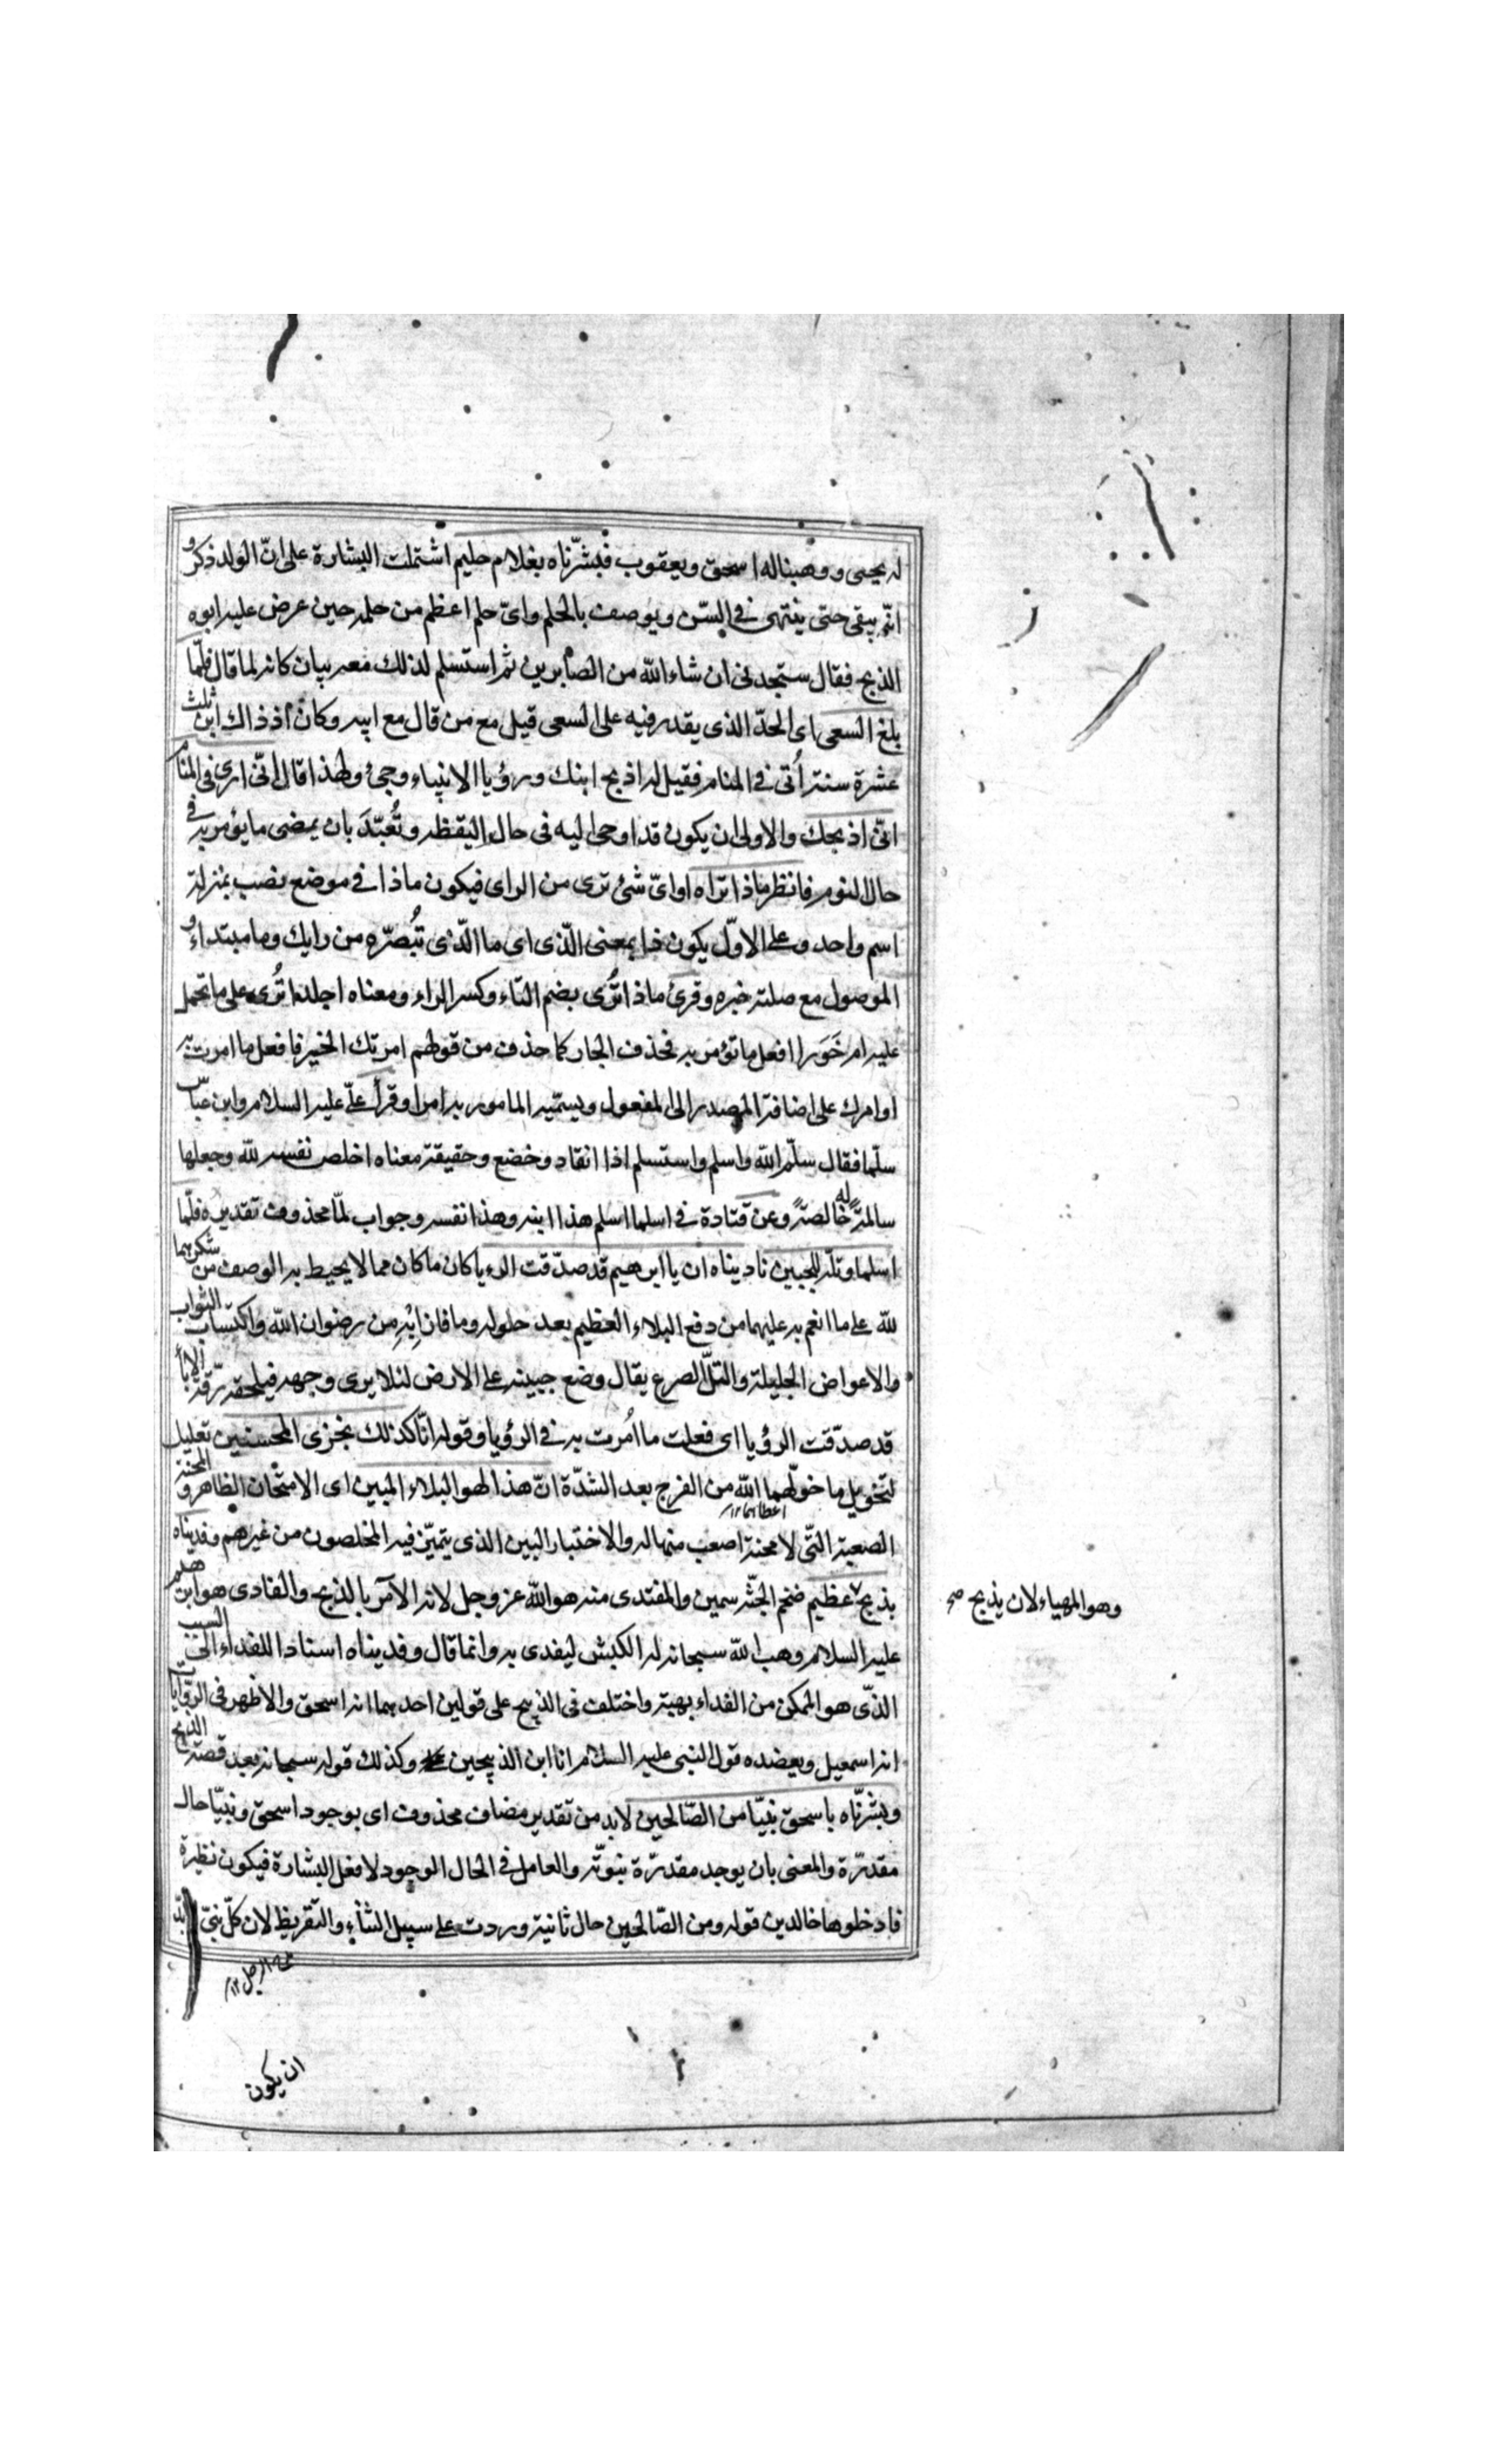 له يحيى ووهبنا له اسحق ويعقوب فبشّرناه بغلام حليم اشتملت البشارة على انّ الولد ذكر و
انّه يبقى حتى ينتهى فى السّن ويوصف بالحلم واىّ حلم اعظم من حلمه حين عرض عليه ابوه
الذبح فقال ستجدنى ان شاء الله من الصابرين ثم استسلم لذلك معه بيان كانه لما قال فلمّا
بلغ السعى اى الحدّ الذى يقدر فيه على السعى قيل مع من قال مع ابيه وكان اذ ذاك ابن ثلث
عشرة سنة أُتى فى المنام فقيل له اذبح ابنك ورؤيا الانبياء وحى ولهذا قال انّى ارى فى المنام
انّى اذبحك والاولى ان يكون قد اوحى اليه فى حال اليقظه وتُعبّدَ بان يمضى ما يؤمر به فى
حال النوم فانظر ماذا تراه او اىّ شئ ترى من الراى فيكون ماذا فى موضع نصب بمنزلة
اسم واحد وعلى الاوّل يكون ذا بمعنى الّذى اى ما الّذى تُبصّره من رايك وما مبتداء و
الموصول مع صلته خبره وقرئ ماذا تُرى بضم التاء وكسر الراء ومعناه اجلدا تُرى على ما تحمل
عليه ام خَوَرا افعل ما تؤمر به فحذف الجار كما حذف من قولهم امرتك الخير فافعل ما امرت به
او امرك على اضافة المصدر الى المفعول ويسمّيه المامور به امرا وقرأ علىّ عليه السلام وابن عبّاس
سلّما فقال سلّم الله واسلم واستسلم اذا انقاد وخضع وحقيقة معناه اخلص نفسه لله وجعلها
سالمةً له خالصةً وعن قتادة فى اسلما اسلم هذا ابنه وهذا نفسه وجواب لمّا محذوف تقديره فلمّا
اسلما وتلّه للجبين ناديناه ان يا ابرهيم قد صدّقت الرءيا كان ما كان مما لا يحيط به الوصف من شكرهما
لله على ما انعم به عليهما من دفع البلاء العظيم بعد حلوله وما فازا به من رضوان الله واكتساب الثواب
والاعواض الجليلة والتلّ الصرع يقال وضع جبينه على الارض لئلا يرى وجهه فيلحقه رّقة الابأ
قد صدّقت الرؤيا اى فعلت ما اُمرت به فى الرؤيا وقوله انّا كذلك نجزى المحسنين تعليل
لتخويل ما خوّلهما الله من الفرج بعد الشدّة انّ هذا لهو البلاء المبين اى الامتحان الظاهر و المحنة
اعطاهما ١٢
الصعبة التّى لا محنة اصعب منها له والاختبار البين الذى يتميّز فيه المخلصون من غيرهم وفديناه
بذبح عظيم ضخم الجثّه سمين والمفتدى منه هو الله عز وجل لانه الآمر بالذبح والفادى هو ابرهيم
وهو المهياء لان يذبح صح
عليه السلام وهب الله سبحانه له الكبش ليفدى به وانما قال وفديناه اسنادا للفداء الى السبب
الذّى هو الممكن من الفداء بهبته واختلف فى الذبيح على قولين احدهما انه اسحق والاظهر فى الرّوايات
انه اسمعيل ويعضده قول النبى عليه السلام انا ابن الذبيحين وكذلك قوله سبحانه بعد قصة الذبح
وبشّرناه باسحق نبيّا من الصّالحين لا بد من تقدير مضاف محذوف اى بوجود اسحق ونبيّا حال
مقدرّة والمعنى بان يوجد مقدرّة نبوتّه والعامل فى الحال الوجود لا فعل البشارة فيكون نظيره
فادخلوها خالدين قوله ومن الصّالحين حال ثانية وردت على سبيل الثناء والتقريظ لان كلّ نبىّ لابدّ
ان يكون